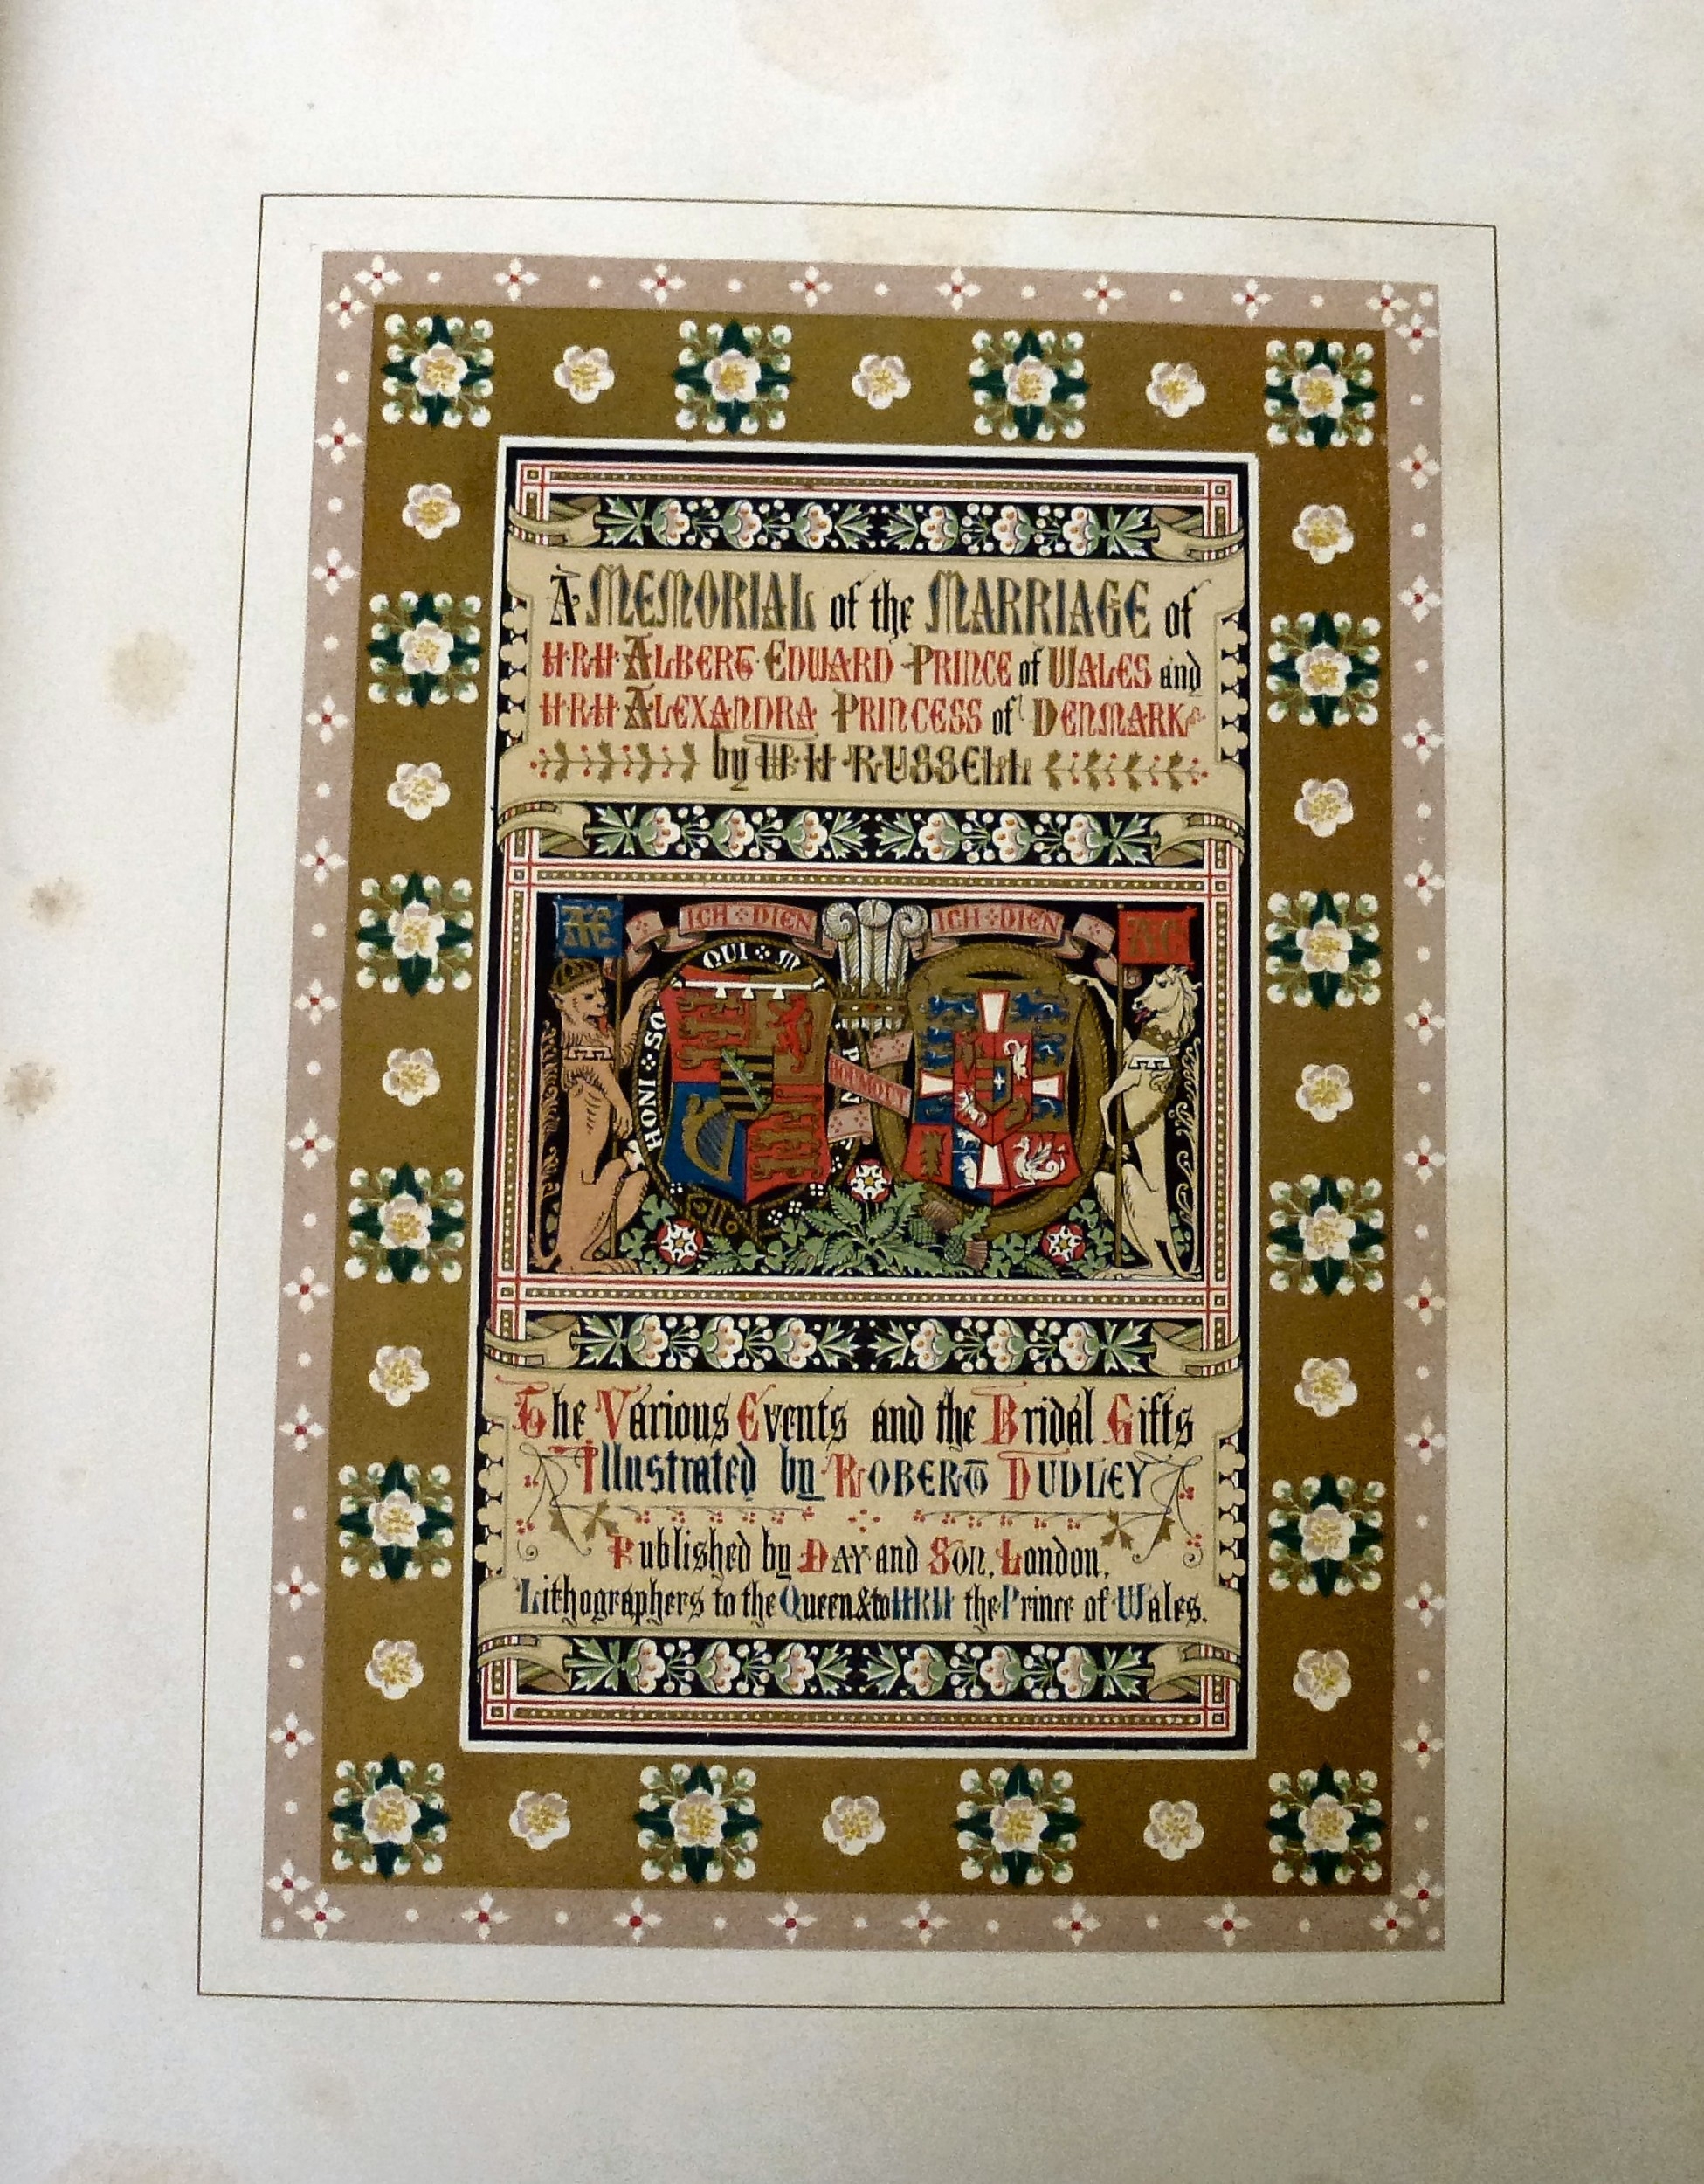 A MEMORIAL of the MARRIAGE of
H·R·H· ALBERT· EDWARD PRINCE of WALES and
H·R·H· ALEXANDRA PRINCESS of DENMARK
by W· H· RUSSELL
AE
ICH DIEN
ICH DIEN
AC
HONI SO
QUI M
HOUMOUT
The Various Events and the Bridal Gifts
Illustrated by ROBERT DUDLEY
Published by DAY and SON, London,
Lithographers to the Queen & to HRH the Prince of Wales.